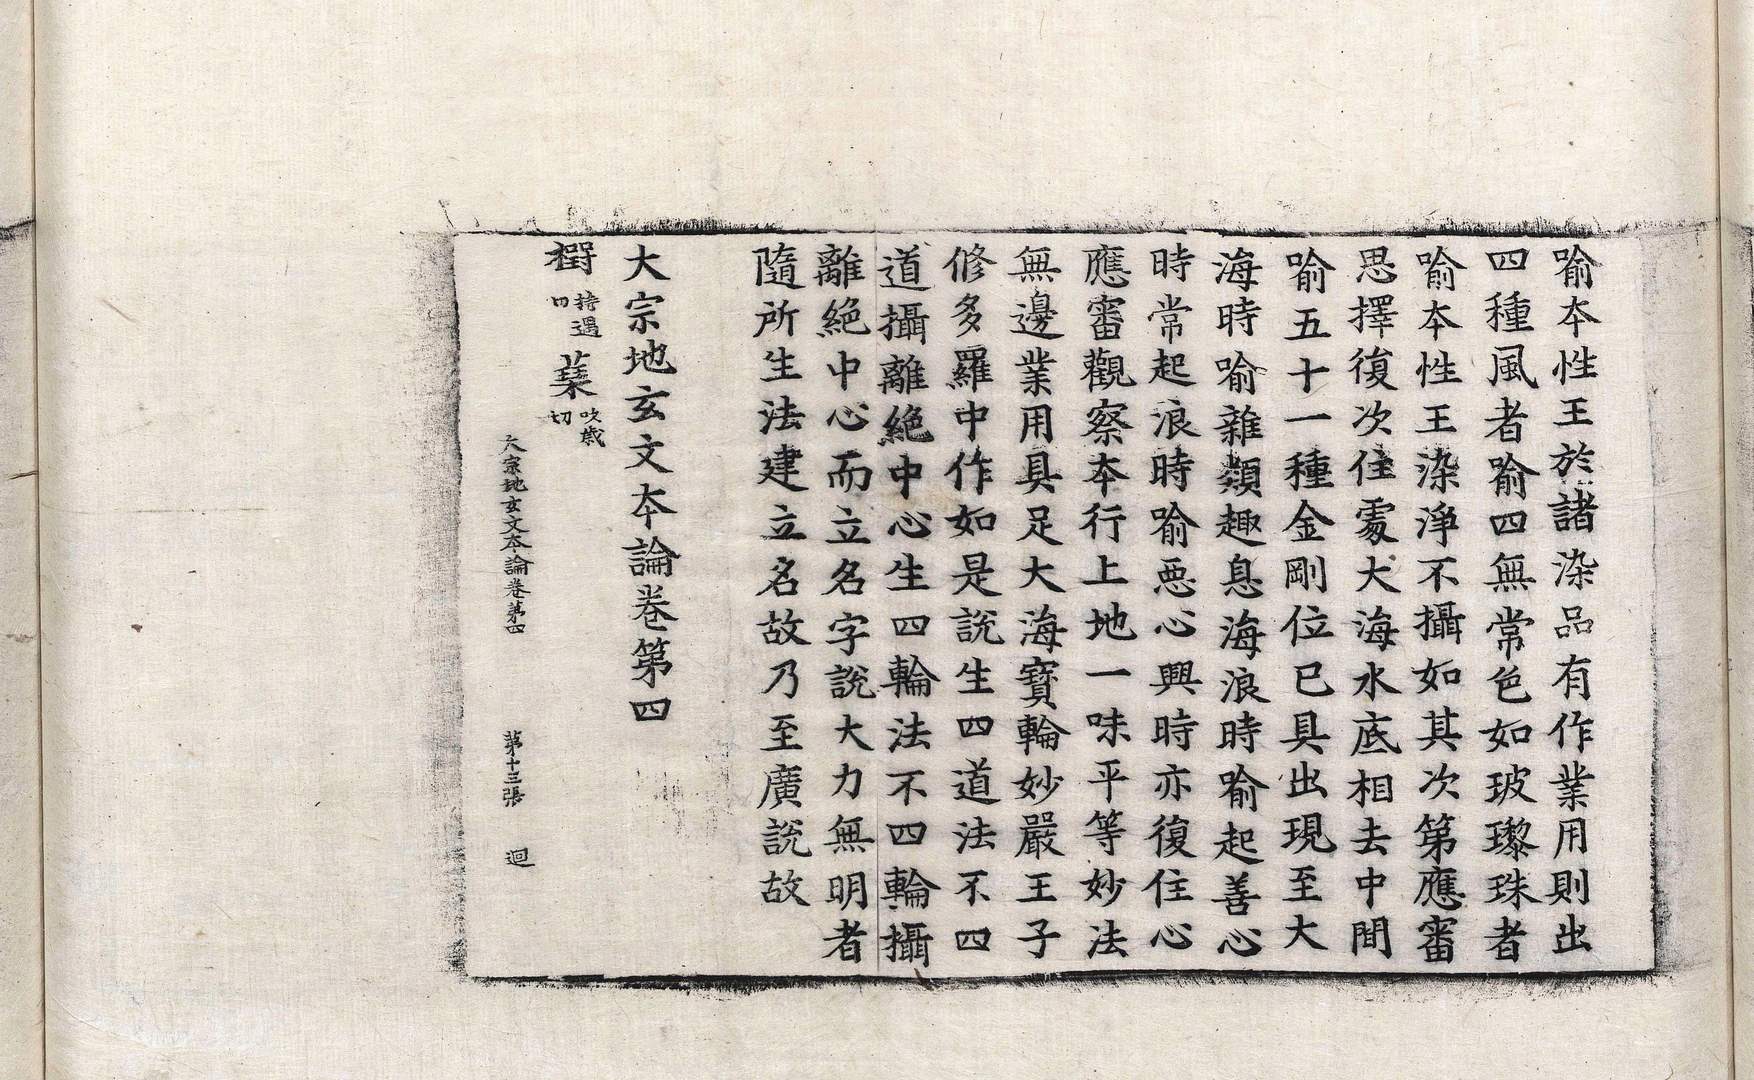 喻夲性王於諸染品有作業用則出
四種風者喻四無常色如玻瓈珠者
喻夲性王染淨不攝如其次第應審
思擇復次住處大海水底相去中間
喻五十一種金剛位已具出現至大
海時喻雜類趣息海浪時喻起善心
時常起浪時喻惡心興時亦復住心
應審觀察夲行上地一味平等妙法
無邊業用具足大海寶輪妙嚴王子
修多羅中作如是說生四道法不四
道攝離絶中心生四輪法不四輪攝
離絶中心而立名字說大力無明者
隨所生法建立名故乃至廣說故
大宗地玄文夲論卷第四
持遇切 蘂 吹歲切
大宗地玄文夲論卷第四 第十三張 迴